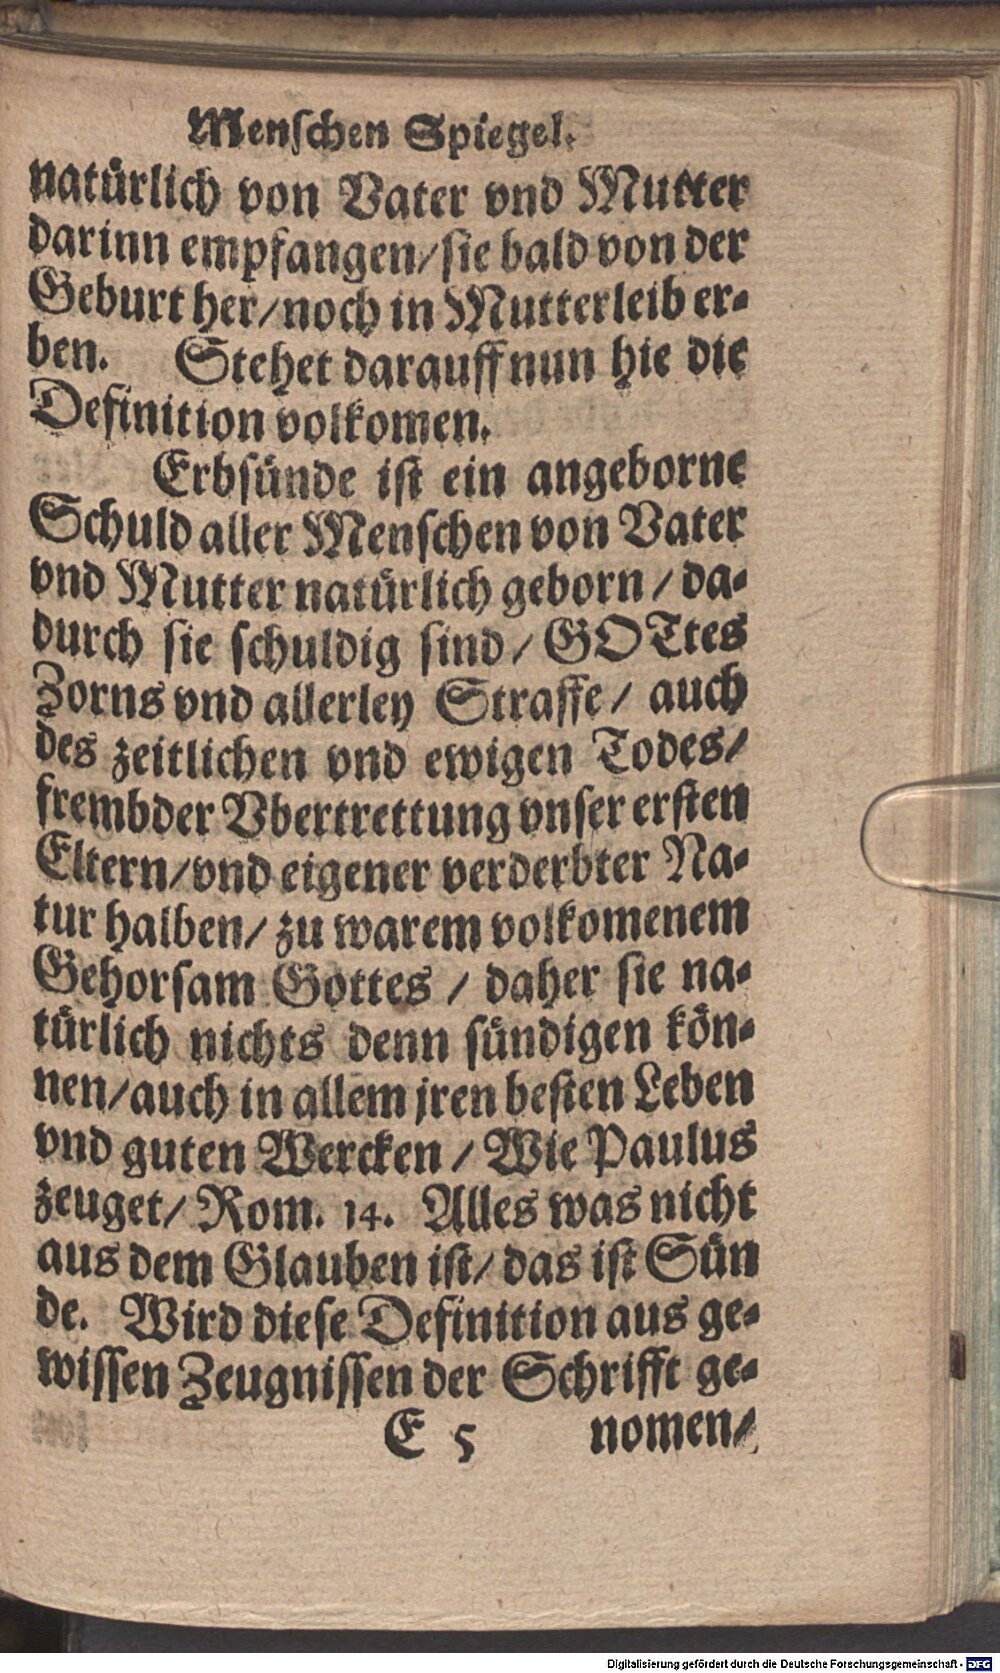 Menschen Spiegel.
natürlich von Vater vnd Mutter
darinn empfangen/sie bald von der
Geburt her/noch in Mutterleib er-
ben. Stehet darauff nun hie die
Definition volkomen.
Erbsünde ist ein angeborne
Schuld aller Menschen von Vater
vnd Mutter natürlich geborn/da-
durch sie schuldig sind/GOTtes
Zorns vnd allerley Straffe/auch
des zeitlichen vnd ewigen Todes/
frembder Vbertrettung vnser ersten
Eltern/vnd eigener verderbter Na-
tur halben/zu warem volkomenem
Gehorsam Gottes/daher sie na-
türlich nichts denn sündigen kön-
nen/auch in allem jren besten Leben
vnd guten Wercken/Wie Paulus
zeuget/Rom. 14. Alles was nicht
aus dem Glauben ist/das ist Sün
de. Wird diese Definition aus ge-
wissen Zeugnissen der Schrifft ge-
E 5 nomen/
Digitalisierung gefördert durch die Deutsche Forschungsgemeinschaft - DFG